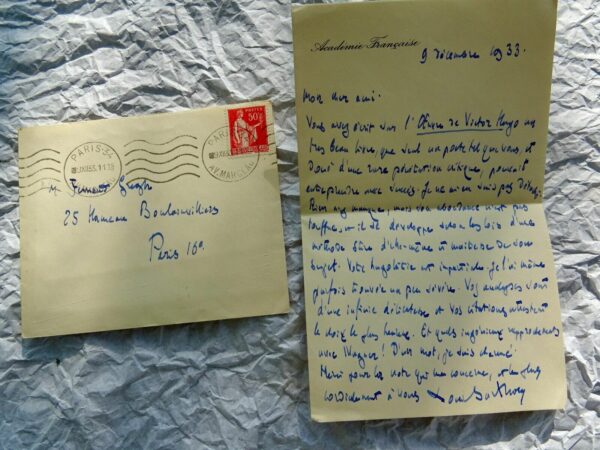 PARIS-34
POSTES
50c
M. Fernand Gregh
25 Hameau Boulainvilliers
Paris 16e
Académie Française
9 décembre 1933.
Mon cher ami.
Vous avez écrit sur l'Œuvre de Victor Hugo un
très beau livre, que seul un poète tel que vous, et
doué d'une rare pénétration critique, pouvait
entreprendre avec succès. Je ne m'en suis pas
Rien n'y manque, mais son abondance n'est pas
touffue : il se développe selon les lois d'une
méthode sûre d'elle-même et maîtresse de son
sujet. Votre est impartiale. Je l'ai même
parfois trouvée un peu sévère. Vos analyses sont
d'une infinie délicatesse et vos citations attestent
le choix le plus Et quels ingénieux rapprochements
avec Wagner ! D'un mot, je suis charmé.
Merci pour la note qui me concerne, et bien
cordialement à vous Louis Barthou